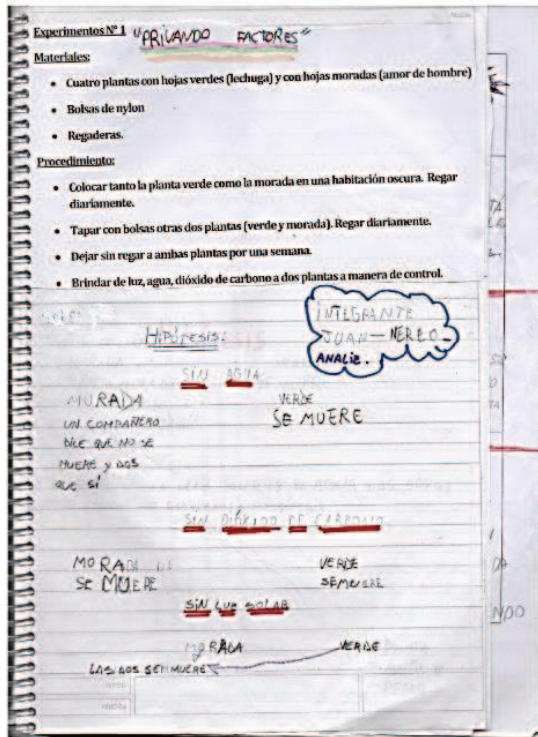 Experimentos N° 1 "PRIVANDO FACTORES"
Materiales:
• Cuatro plantas con hojas verdes (lechuga) y con hojas moradas (amor de hombre)
• Bolsas de nylon
• Regaderas.
Procedimiento:
• Colocar tanto la planta verde como la morada en una habitación oscura. Regar
diariamente.
• Tapar con bolsas otras dos plantas (verde y morada). Regar diariamente.
• Dejar sin regar a ambas plantas por una semana.
• Brindar de luz, agua, dióxido de carbono a dos plantas a manera de control.
INTEGRANTE
JUAN - NEREO -
ANALIZ.
HIPÓTESIS:
SIN AGUA
MURADA
UN COMPAÑERO
DICE QUE NO SE
MUERE Y DOS
QUE SÍ
VERDE
SE MUERE
SIN DIÓXIDO DE CARBONO
MORADA
SE MUERE
VERDE
SE MUERE
SIN LUZ SOLAR
MORADA VERDE
LAS DOS SE MUERE
NDO